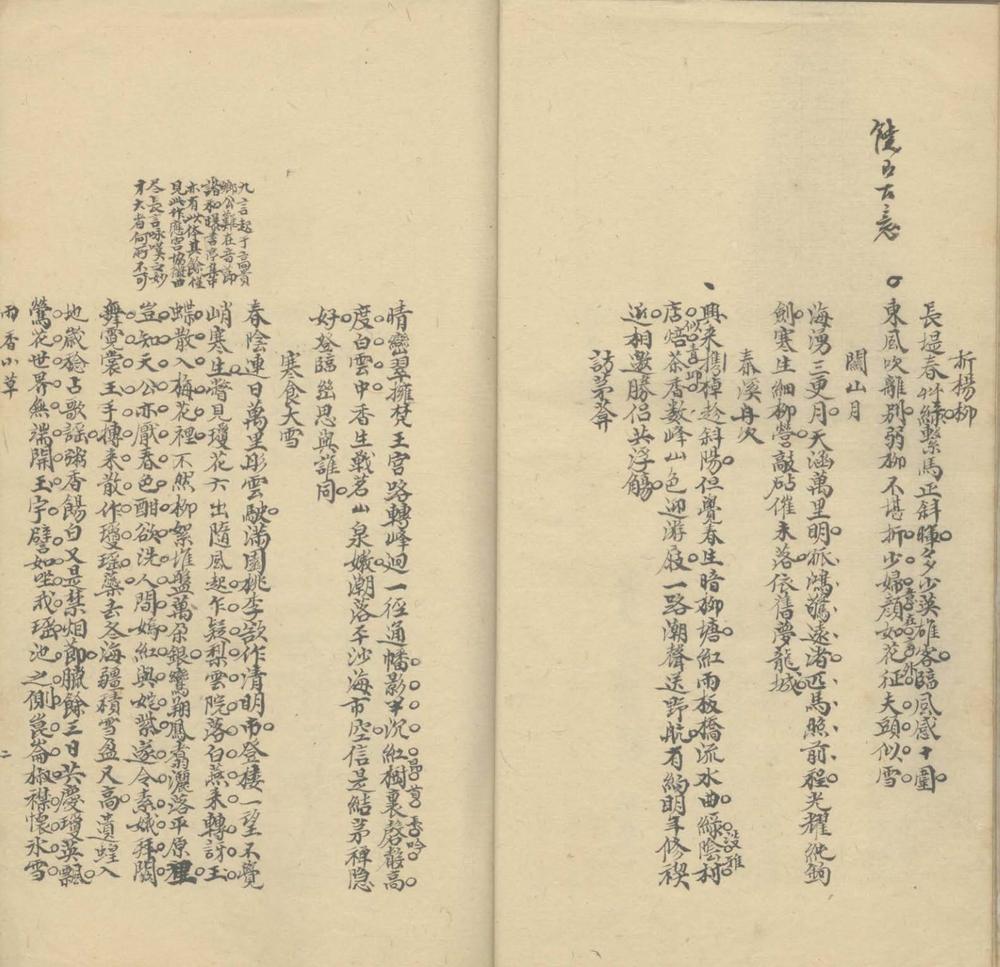 饒有古意
折楊柳
長堤春草綠繫馬正斜暉多少英雄客臨風感十圍
東風吹離別弱柳不堪折少婦顏如花征夫頭似雪
意在言外
關山月
海湧三更月天涵萬里明孤鴻驚遠渚匹馬照前程光耀純鉤
劍寒生細柳營敲砧催未落依舊夢龍城
春溪舟次
興来携棹趁斜陽但覺春生暗柳塘紅雨板橋流水曲綠陰村
淡雅
店焙茶香数峰山色迎游屐一路潮聲送野航有約明年修禊
似青邱
逝相邀勝侶共浮觴
訪茅菴
晴巒翠擁梵王宮路轉峰迴一徑通幡影中沉紅樹裏磬聲高
昂首長吟
度白雲中香生戰茗山泉嫩潮落平沙海市空信是結茅禪隐
好登臨幽思與誰同
寒食大雪
春陰連日萬里彤雲駛滿園桃李欲作清明市登樓一望不覺
峭寒生瞥見瓊花六出隨風起乍疑梨雲院落白燕来轉訝玉
蝶散入梅花裡不然柳絮堆盤萬朵銀鸞翔鳳翥灑落平原裡
豈知天公亦厭春色酣欲洗人間嫣紅與姹紫遂令素娥拜闕
舞霓裳玉手摶来散作瓊瑤蘂去冬海疆積雪盈尺高遺蝗入
地歲稔占歌謡粥香餳白又是禁烟節臘餘三日共慶瓊英飄
鶯花世界無端開玉宇譬如坐我瑶池之側崑崙椒襟懷冰雪
九言起于高貴
鄉公難在音節
諧和曝書亭集中
亦有此体其餘僅
見此作應宮協徵曲
尽長言咏嘆之妙
才大者何所不可
雨香小草
二